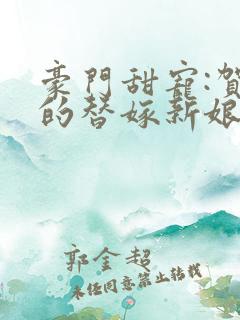 豪門甜寵:賀
的替嫁新娘
郭金超
未经同意禁止转载